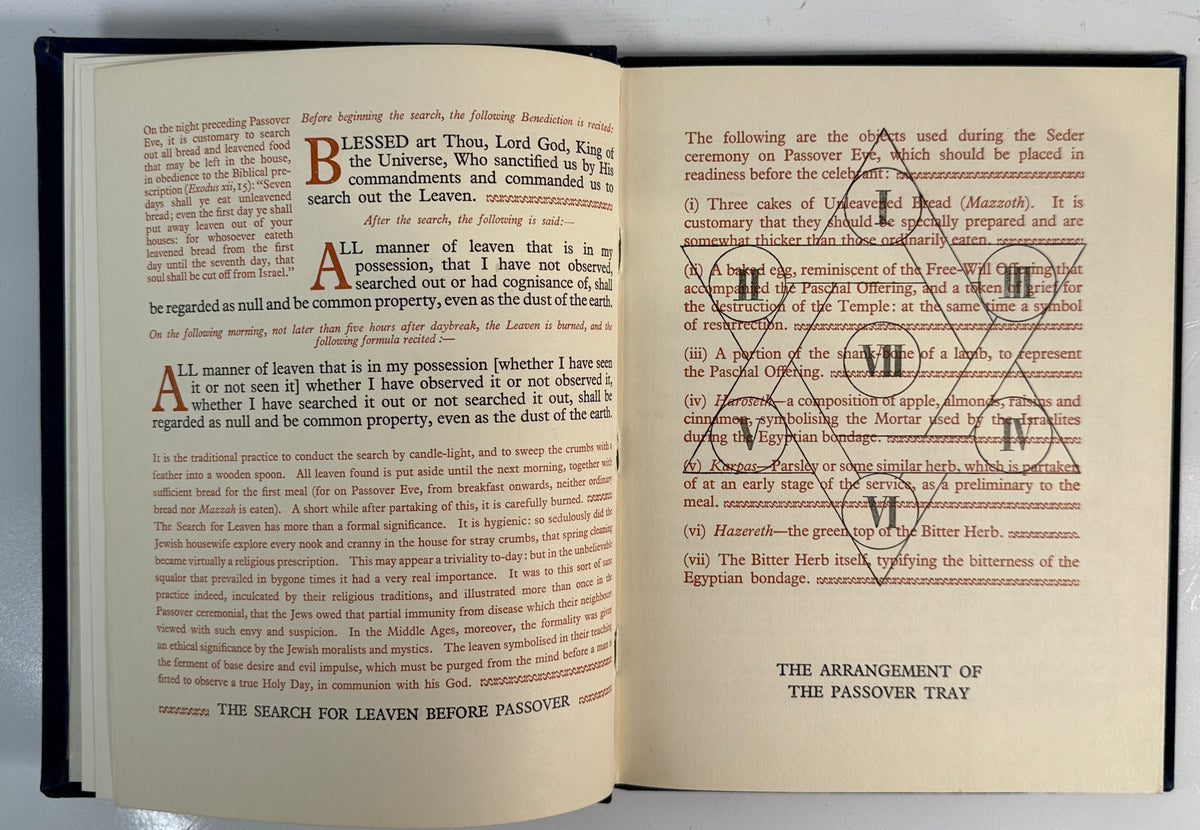 On the night preceding Passover
Eve, it is customary to search
out all bread and leavened food
that may be left in the house,
in obedience to the Biblical pre-
scription (Exodus xii, 15): “Seven
days shall ye eat unleavened
bread; even the first day ye shall
put away leaven out of your
houses: for whosoever eateth
leavened bread from the first
day until the seventh day, that
soul shall be cut off from Israel.”
Before beginning the search, the following Benediction is recited:
BLESSED art Thou, Lord God, King of
the Universe, Who sanctified us by His
commandments and commanded us to
search out the Leaven.
After the search, the following is said:—
ALL manner of leaven that is in my
possession, that I have not observed,
searched out or had cognisance of, shall
be regarded as null and be common property, even as the dust of the earth.
On the following morning, not later than five hours after daybreak, the Leaven is burned, and the
following formula recited:—
ALL manner of leaven that is in my possession [whether I have seen
it or not seen it] whether I have observed it or not observed it,
whether I have searched it out or not searched it out, shall be
regarded as null and be common property, even as the dust of the earth.
It is the traditional practice to conduct the search by candle-light, and to sweep the crumbs with a
feather into a wooden spoon. All leaven found is put aside until the next morning, together with
sufficient bread for the first meal (for on Passover Eve, from breakfast onwards, neither ordinary
bread nor Mazzah is eaten). A short while after partaking of this, it is carefully burned.
The Search for Leaven has more than a formal significance. It is hygienic: so sedulously did the
Jewish housewife explore every nook and cranny in the house for stray crumbs, that spring cleaning
became virtually a religious prescription. This may appear a triviality to-day: but in the unbelievable
squalor that prevailed in bygone times it had a very real importance. It was to this sort of sane
practice indeed, inculcated by their religious traditions, and illustrated more than once in the
Passover ceremonial, that the Jews owed that partial immunity from disease which their neighbours
viewed with such envy and suspicion. In the Middle Ages, moreover, the formality was given
an ethical significance by the Jewish moralists and mystics. The leaven symbolised in their teaching
the ferment of base desire and evil impulse, which must be purged from the mind before a man is
fitted to observe a true Holy Day, in communion with his God.
THE SEARCH FOR LEAVEN BEFORE PASSOVER
The following are the objects used during the Seder
ceremony on Passover Eve, which should be placed in
readiness before the celebrant:
I
(i) Three cakes of Unleavened Bread (Mazzoth). It is
customary that they should be specially prepared and are
somewhat thicker than those ordinarily eaten.
(ii) A baked egg, reminiscent of the Free-Will Offering that
accompanied the Paschal Offering, and a token of grief for
the destruction of the Temple: at the same time a symbol
of resurrection.
II
III
(iii) A portion of the shank-bone of a lamb, to represent
the Paschal Offering.
VII
(iv) Haroseth—a composition of apple, almonds, raisins and
cinnamon, symbolising the Mortar used by the Israelites
during the Egyptian bondage.
V
IV
(v) Karpas—Parsley or some similar herb, which is partaken
of at an early stage of the service, as a preliminary to the
meal.
VI
(vi) Hazereth—the green top of the Bitter Herb.
(vii) The Bitter Herb itself, typifying the bitterness of the
Egyptian bondage.
THE ARRANGEMENT OF
THE PASSOVER TRAY